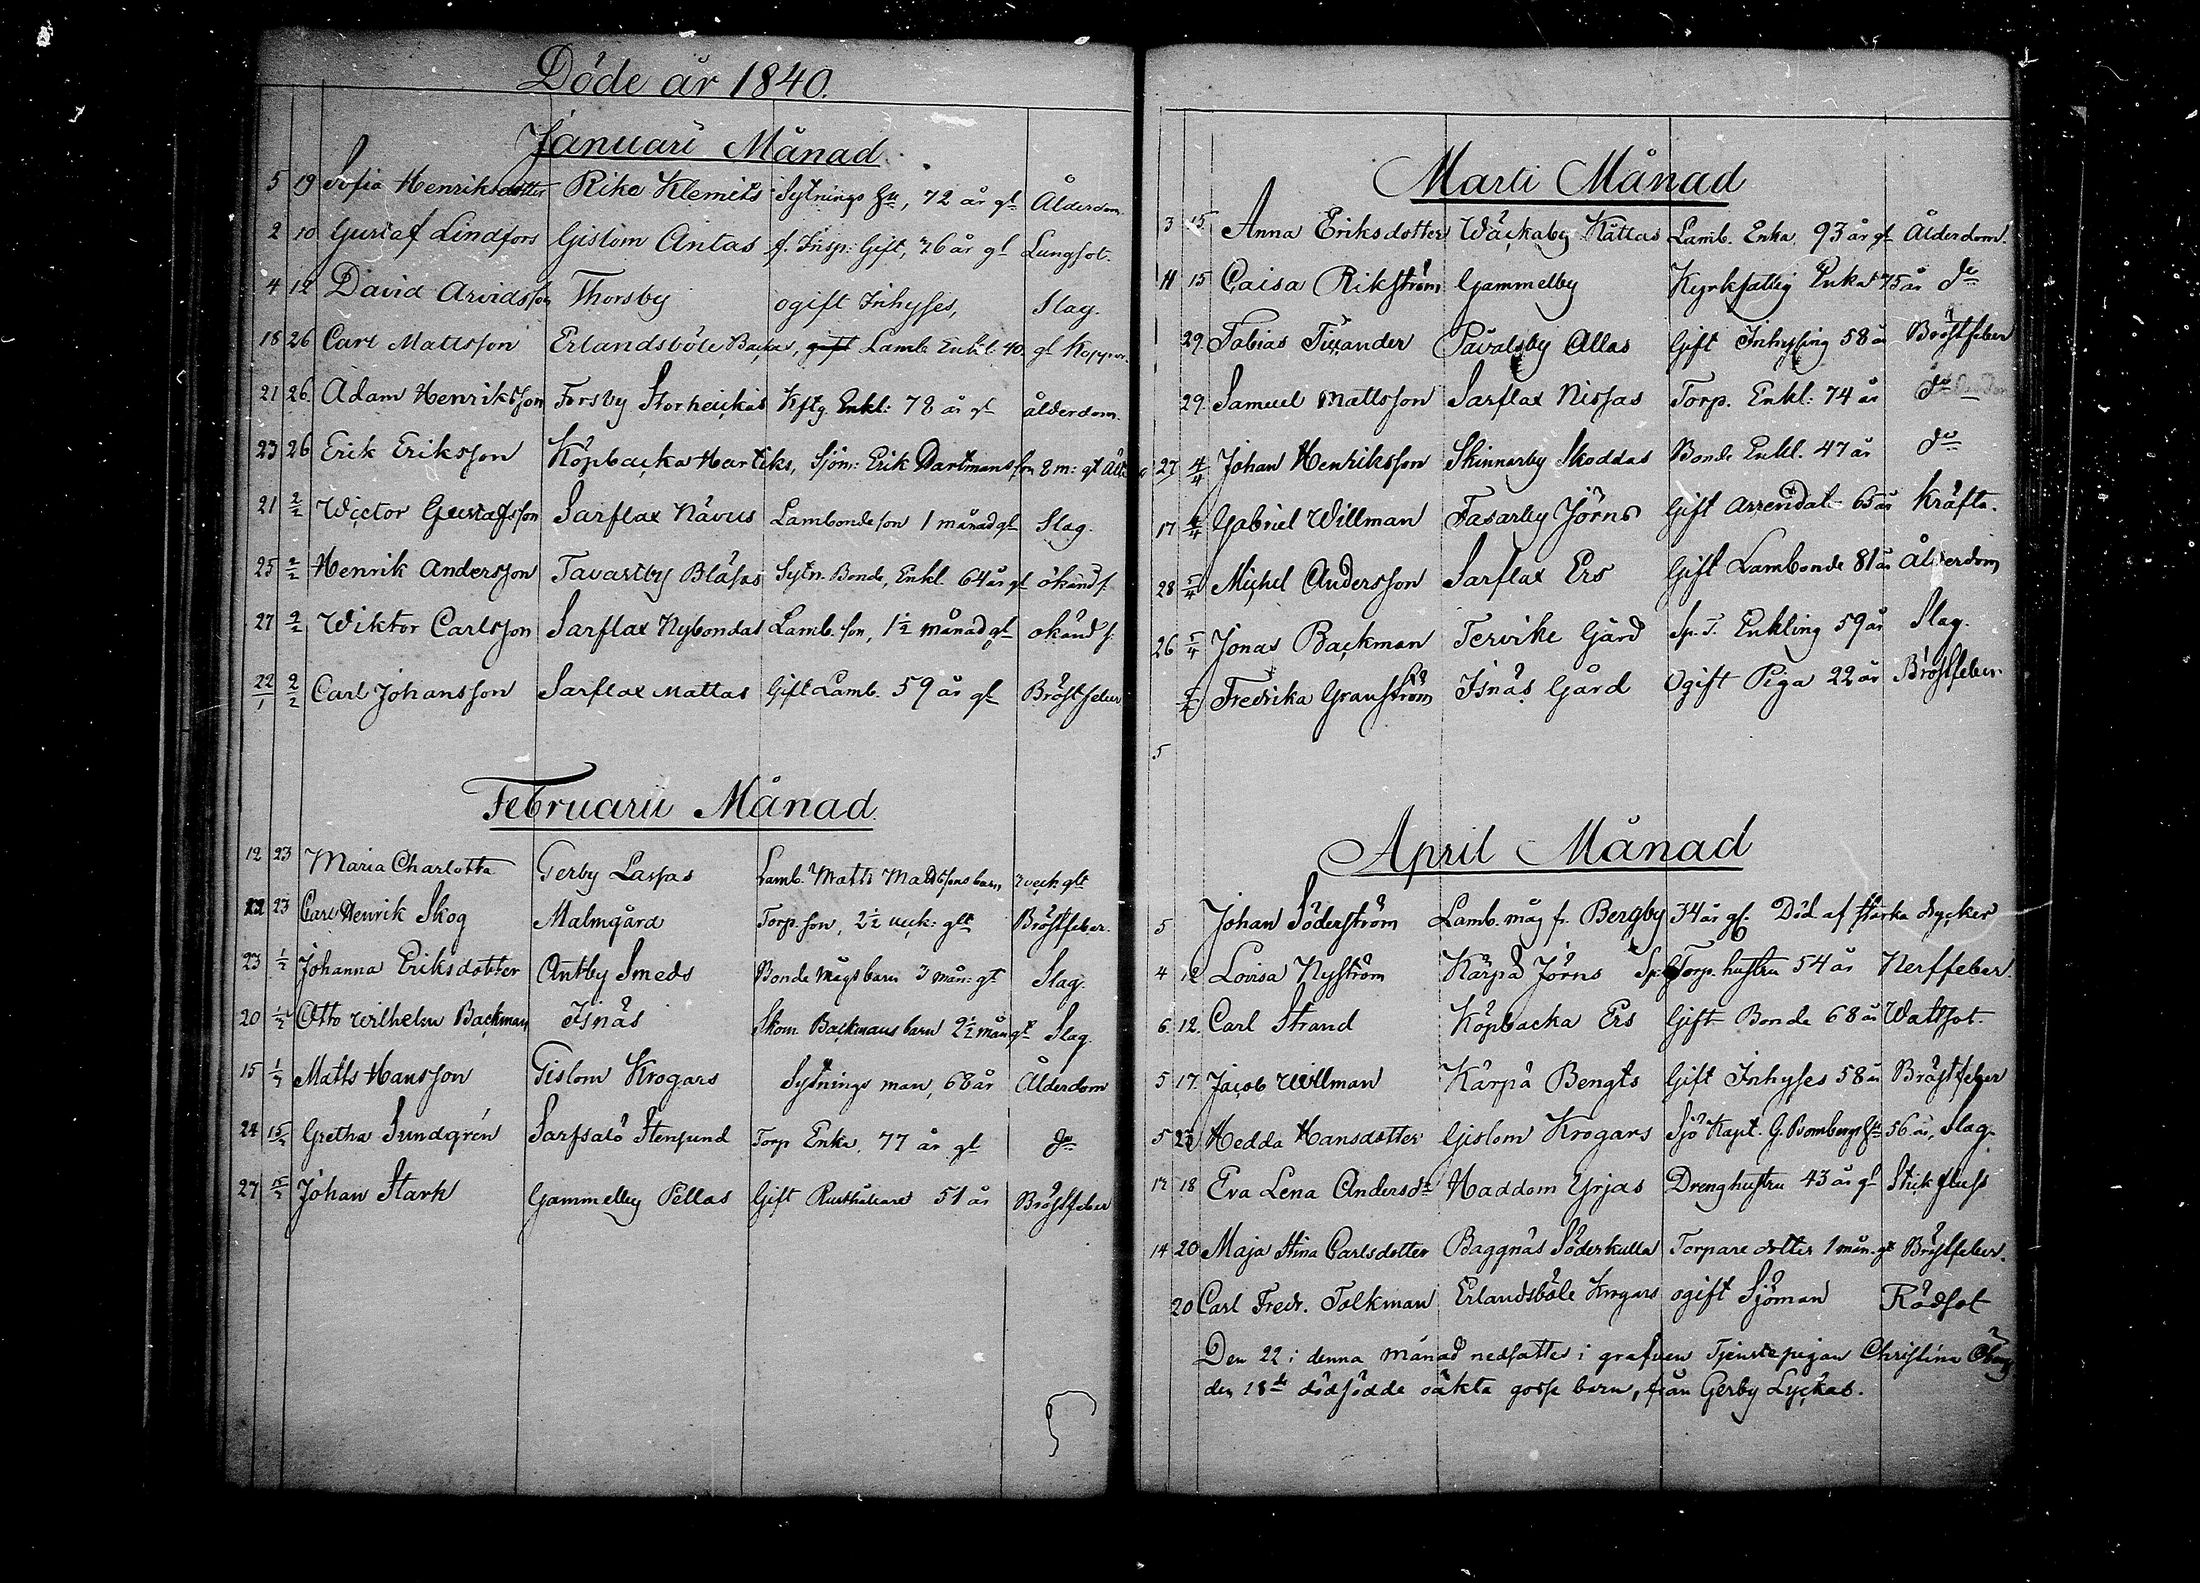 Döde år 1840.
Januari Månad
5 19 Sofia Henriksdotter Rike Klemets Sytnings hu, 72 år gl Ålderdom
2 10 Gustaf Lindfors Gislom Antas f. Insp: Gift, 26 år gl Lungsot.
4 12 David Arvidsson Thorsby ogift Inhyses, Slag.
18 26 Carl Mattsson Erlandsböle Backas, Lamb. Enkl. 40, gl Koppor
21 26 Adam Henriksson Forsby Storheickas Kftg. Enkl: 78 år gl ålderdom.
23 26 Erik Eriksson Köpbacka Hartiks, Sjöm: Erik Dartmans son 8 m: gl
21 2/2 Wictor Gustafsson Sarflax Nävus Lambonde son 1 månad gl Slag.
25 2/2 Henrik Andersson Tavastby Blåsas Sytn. Bonde, Enkl. 64 år gl okänd s.
27 9/2 Wiktor Carlsson Sarflax Nybondas Lamb. son, 1½ månad gl okänd s.
22/1 9/2 Carl Johansson Sarflax Mattas Gift Lamb. 59 år gl Bröstfeber
Februarii Månad
12 23 Maria Charlotta Gerby Lassas Lamb. Matts Mattssons barn 2 veck glt
12 23 Carl Henrik Skog Malmgård Torp. son, 2½ veck: glt Bröstfeber.
23 1/3 Johanna Eriksdotter Antby Smeds Bonde mågs barn 3 mån: gl Slag.
20 1/3 Otto Wilhelm Backman Isnäs Skom. Backmans barn 2½ mån gl Slag.
15 1/3 Matts Hansson Gislom Krogars Sytnings man, 68 år Ålderdom
24 15/3 Gretha Sundgrén Sarfsalö Stensund Torp Enka, 77 år gl do
27 15/3 Johan Stark Gammelby Pellas Gift Rusthållare 51 år Bröstfeber
Marti Månad
3 15 Anna Eriksdotter Wäckaby Kättas Lamb. Enka 93 år gl Ålderdom.
11 15 Caisa Rikström Gammelby Kyrkfattig Enka 75 år do
29. Tobias Tixander Påvalsby Allas Gift Inhysing 58 år Bröstfeber
29. Samuel Mattsson Sarflax Nissas Torp. Enkl: 74 år do
27 4/4 Johan Henriksson Skinnarby Skoddas Bonde Enkl. 47 år do
17 4/4 Gabriel Willman Fasarby Jörns Gift Arrendat. 65 år Kräfta.
28 5/4 Michel Andersson Sarflax Ers Gift Lambonde 81 år Ålderdom
26 5/4 Jonas Backman Tervike Gård Sp. T. Enkling 59 år Slag.
Fredrika Granström Isnäs Gård Ogift Piga 22 år Bröstfeber.
5
April Månad
5 Johan Söderström Lamb. måg fr. Bergby 34 år gl. Död af starka drycker
4 12 Lovisa Nyström Kärpå Jörns Sp. Torp. hustru 54 år Nerffeber
6 12. Carl Strand Köpbacka Ers Gift Bonde 68 år Wattsot.
5 17. Jacob Willman Kärpå Bengts Gift Inhyses 58 år Bröstfeber
5 23 Hedda Hansdotter Gislom Krogars Sjö Kapt. G. Brombergs hu 56 år, Slag.
12 18 Eva Lena Andersdr Haddom Yrjas Drenghustru 43 år gl Stickfluss
14 20 Maja Stina Carlsdotter Baggnäs Söderkulla Torpare dotter 1 mån. gl Bröstfeber.
20 Carl Fredr. Tolkman Erlandsböle Krogars ogift Sjöman Rödsot
Den 22 i denna månad nedsattes i grafven Tjenstepigan Christina Öberg
den 18de dödfödde oäkta gosse barn, från Gerby Lyckas.